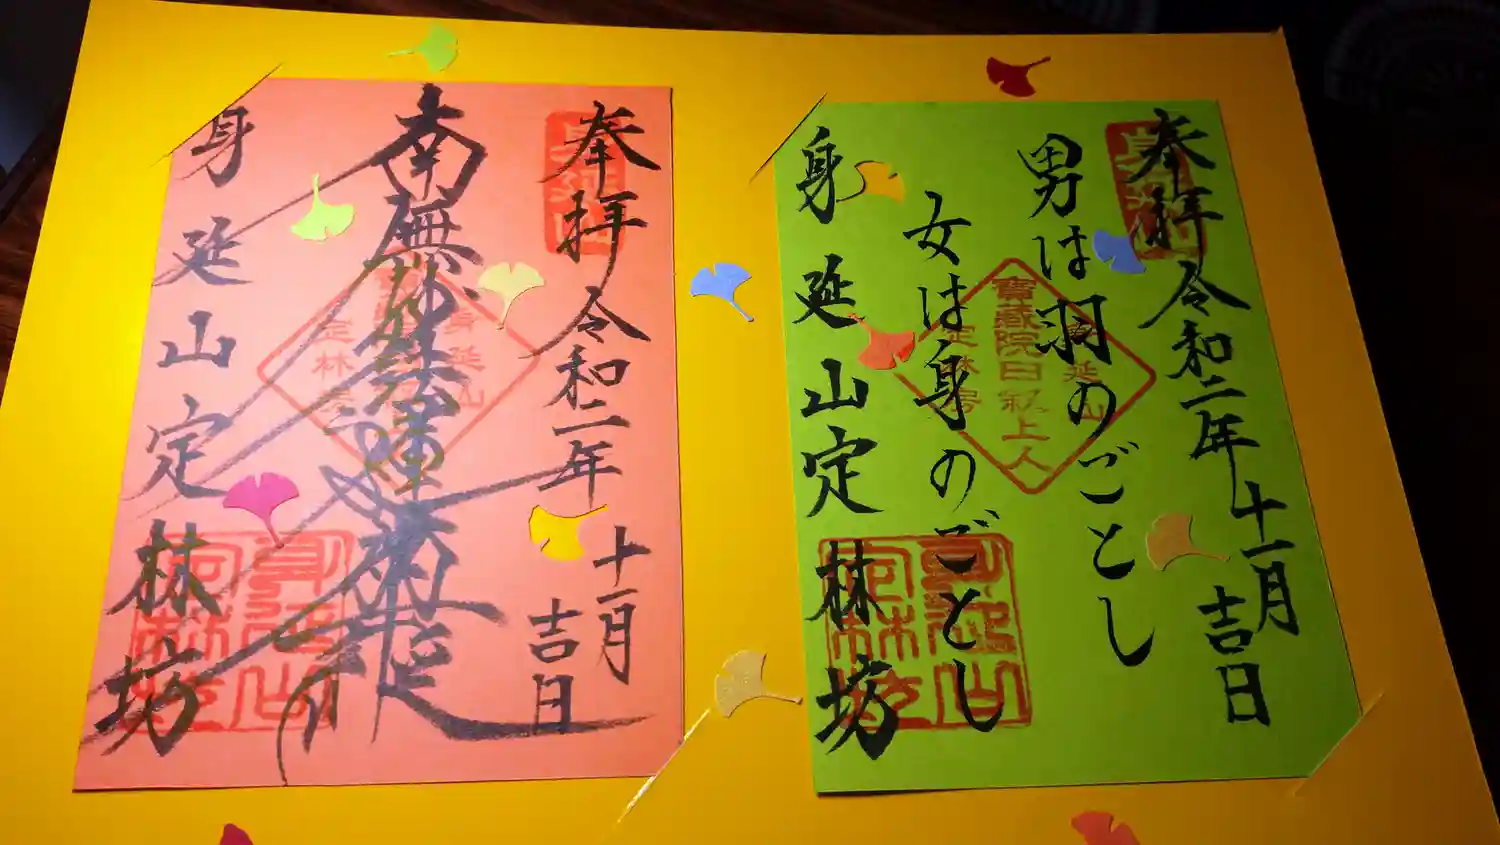 奉拝 令和二年 十一月 吉日
男は羽のごとし
女は身のごとし
身延山定林坊
身延山
寶蔵院日叙上人
定林房
奉拝 令和二年 十一月 吉日
南無妙法蓮華経
身延山定林坊
身延山
定林房